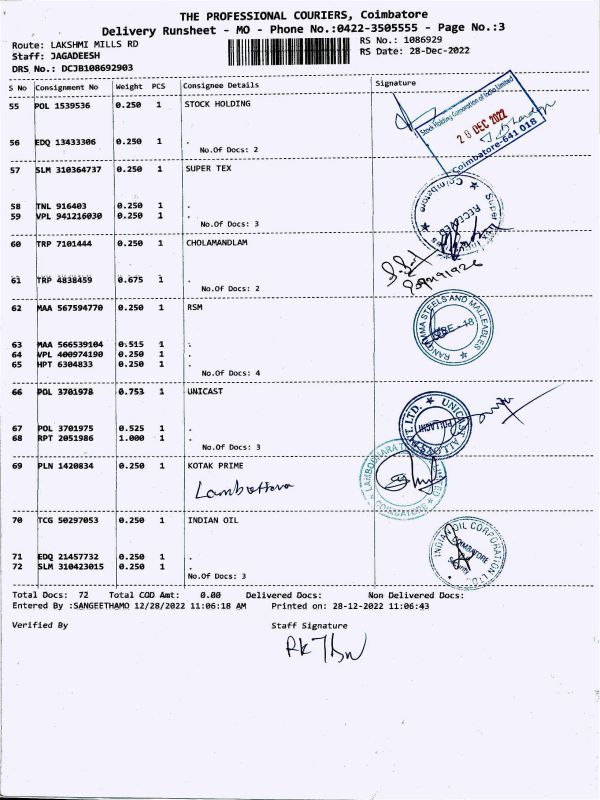 THE PROFESSIONAL COURIERS, Coimbatore
Delivery Runsheet - MO - Phone No.:0422-3505555 - Page No.:3
Route: LAKSHMI MILLS RD
RS No.: 1086929
Staff: JAGADEESH
RS Date: 28-Dec-2022
DRS No.: DCJB108692903
S No Consignment No Weight PCS Consignee Details Signature
55 POL 1539536 0.250 1 STOCK HOLDING
Stock Holding Corporation of India Limited
28 DEC 2022
Coimbatore-641 018
56 EDQ 13433306 0.250 1 .
No.Of Docs: 2
57 SLM 310364737 0.250 1 SUPER TEX
58 TNL 916403 0.250 1 .
59 VPL 941216030 0.250 1 .
No.Of Docs: 3
Super
RECEIVED
Coimbatore
60 TRP 7101444 0.250 1 CHOLAMANDLAM
61 TRP 4838459 0.675 1 .
No.Of Docs: 2
62 MAA 567594770 0.250 1 RSM
RANGAMMA STEELS AND MALLEABLES
CBE - 18
63 MAA 566539104 0.515 1 .
64 VPL 400974190 0.250 1 .
65 HPT 6304833 0.250 1 .
No.Of Docs: 4
66 POL 3701978 0.753 1 UNICAST
UNICAST ALLOYS
LTD.
POLLACHI
67 POL 3701975 0.525 1 .
68 RPT 2051986 1.000 1 .
No.Of Docs: 3
69 PLN 1420834 0.250 1 KOTAK PRIME
Lambothara
LAMBODHARA
LIMITED
COIMBATORE
70 TCG 50297053 0.250 1 INDIAN OIL
INDIAN OIL CORPORATION LTD.
COIMBATORE
Security
71 EDQ 21457732 0.250 1 .
72 SLM 310423015 0.250 1 .
No.Of Docs: 3
Total Docs: 72 Total COD Amt: 0.00 Delivered Docs: Non Delivered Docs:
Entered By :SANGEETHAMO 12/28/2022 11:06:18 AM Printed on: 28-12-2022 11:06:43
Verified By Staff Signature